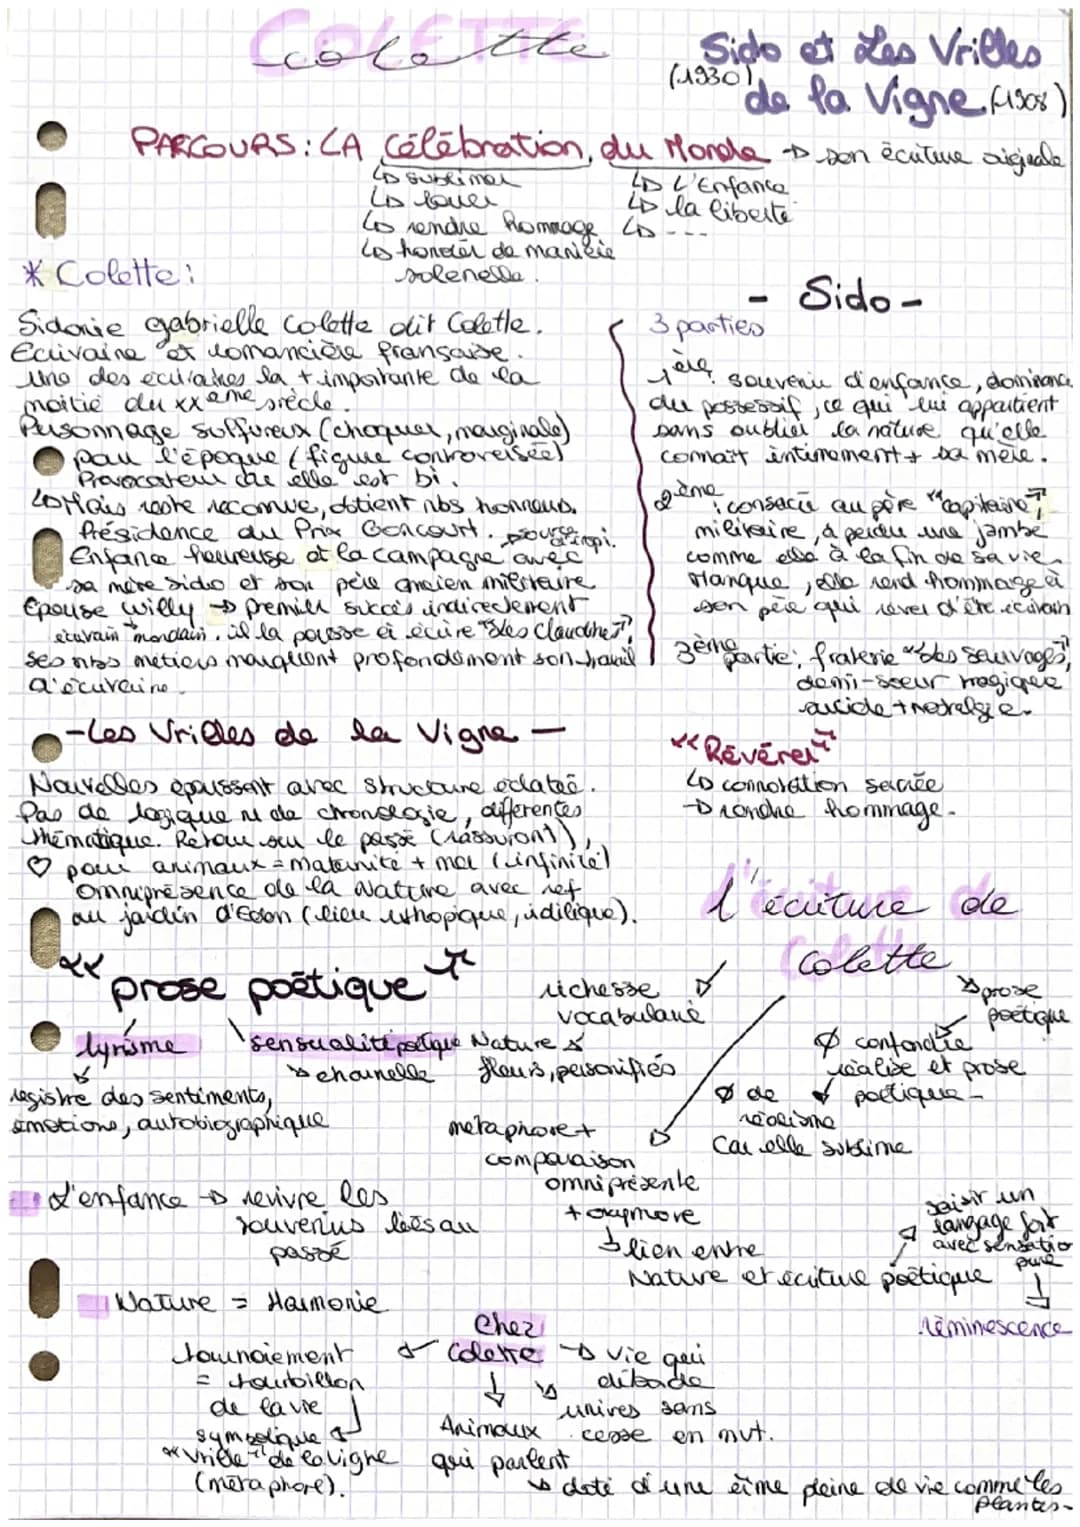 Colette
Sido et Les Vrilles
(1930)
de la Vigne (1908)
PARCOURS : LA Célébration du Monde → son écriture originale
↳ sublimer
↳ louer
↳ rendre hommage
↳ honorer de manière
solenelle.
↳ L'Enfance
↳ la liberté
↳ ---
* Colette :
Sidonie Gabrielle Colette dit Colette.
Ecrivaine et romancière française.
Une des écrivaines la + importante de la
moitié du XXème siècle.
Personnage sulfureux (choquer, marginale)
pour l'époque (figure controversée)
Provocateur car elle est bi.
↳ Mais reste reconnue, obtient nbs honneurs.
Présidence du Prix Goncourt. source
d'inspi.
Enfance heureuse at la campagne avec
sa mère Sido et son père ancien militaire
Epouse Willy → premier succès indirectement
écrivain mondain, il la pousse à écrire "Les Claudine",
ses nbs métiers marquent profondément son travail
d'écrivaine.
- Sido -
3 parties
1ère : souvenir d'enfance, dominance
du possessif, ce qui lui appartient
sans oublier la nature qu'elle
connaît intimement + sa mère.
2ème : consacré au père "capitaine",
militaire, a perdu une jambe
comme elle à la fin de sa vie
Manque, elle rend hommage à
son père qui rêver d'être écrivain
3ème partie : fraterie "Les Sauvages",
demi-soeur tragique
suicide + nostalgie.
- Les Vrilles de la Vigne -
Nouvelles épuissent avec structure éclatée.
Pas de logique ni de chronologie, différentes
thématique. Retour sur le passé (rassurant),
♡ pour animaux = maternité + mer (infinité)
Omniprésence de la Nature avec ref
au jardin d'Eden (lieu uthopique, idilique).
"Révérer"
↳ connotation sacrée
→ rendre hommage.
l'écriture de
Colette
"prose poétique"
lyrisme
registre des sentiments,
émotions, autobiographique
sensualité poétique
↘ charnelle
richesse
vocabulaire
Nature
fleurs, personifiés
métaphore +
comparaison
omniprésente
+ oxymore
↳ lien entre
Nature et écriture poétique
prose
poétique
∅ confondre
réalise et prose
poétique -
∅ de
réalisme
Car elle sublime
saisir un
langage fort
avec sensatio
pure
réminescence
L'enfance → revivre les
souvenirs liés au
passé
Nature = Harmonie
Chez
Colette → vie qui
déborde
univers sans
cesse en mvt.
tournoiement
= tourbillon
de la vie
symbolique
"Vrille" de la vigne
(métaphore).
Animaux
qui parlent
↘ doté d'une âme pleine de vie comme les
plantes -